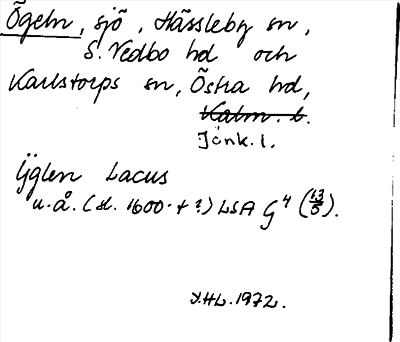 Ögeln, sjö, Hässleby sn,
S. Vedbo hd och
Karlstorps sn, Östra hd,
Kalm. l.
Jönk. l.
Ÿglen Lacus
u. å. (sl. 1600-t ?) LSA G4 (13/5).
J.HL. 1972.